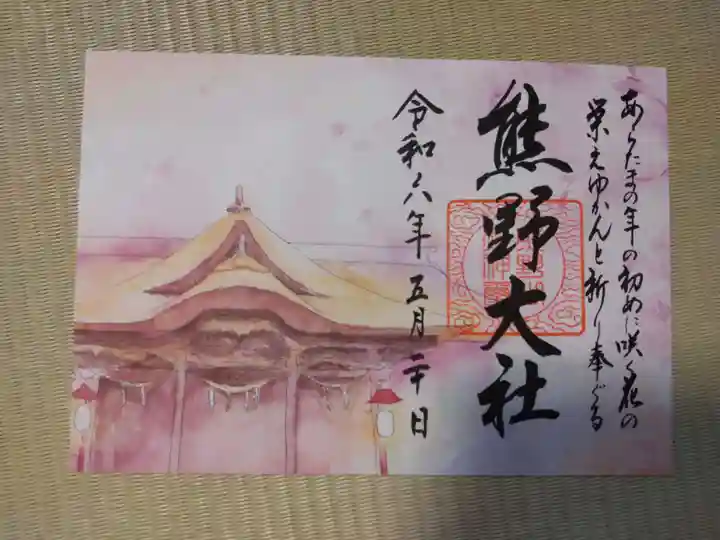 あらたまの年の初めに咲く花の
栄えゆかんと祈り奉ぐる
熊野大社
令和六年五月二十日